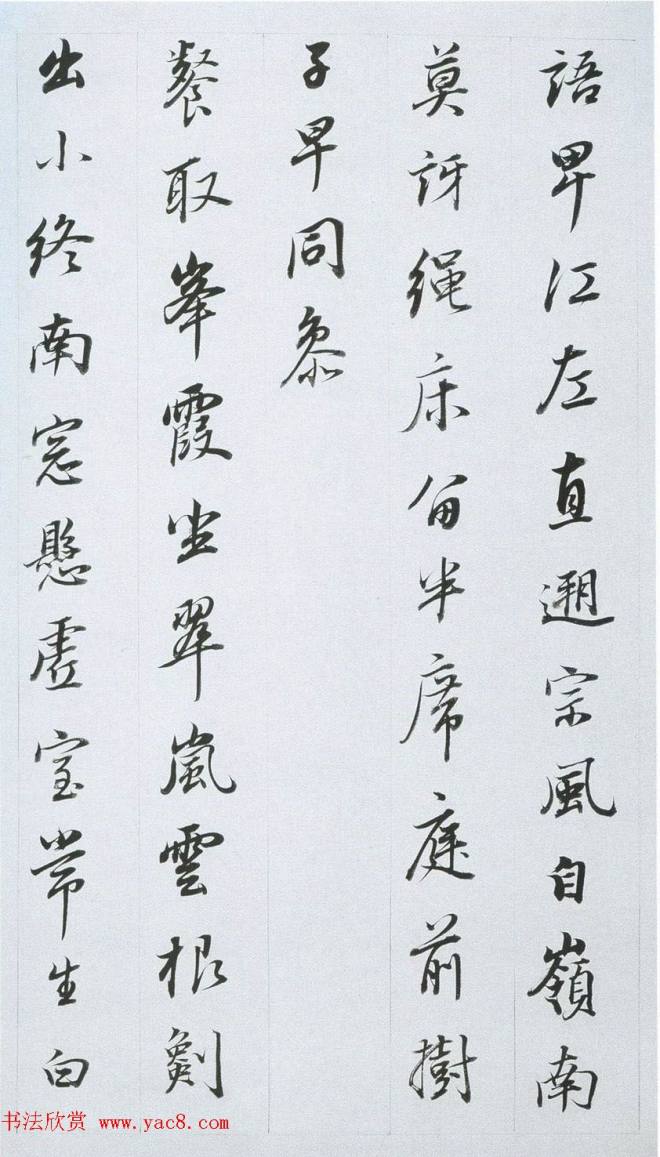 語卑江左直遡宗風自嶺南
莫訝繩床分半席庭前樹
子早同參
餐取峯霞坐翠嵐雲根劍
出小終南窓懸虛室常生白
书法欣赏 www.yac8.com